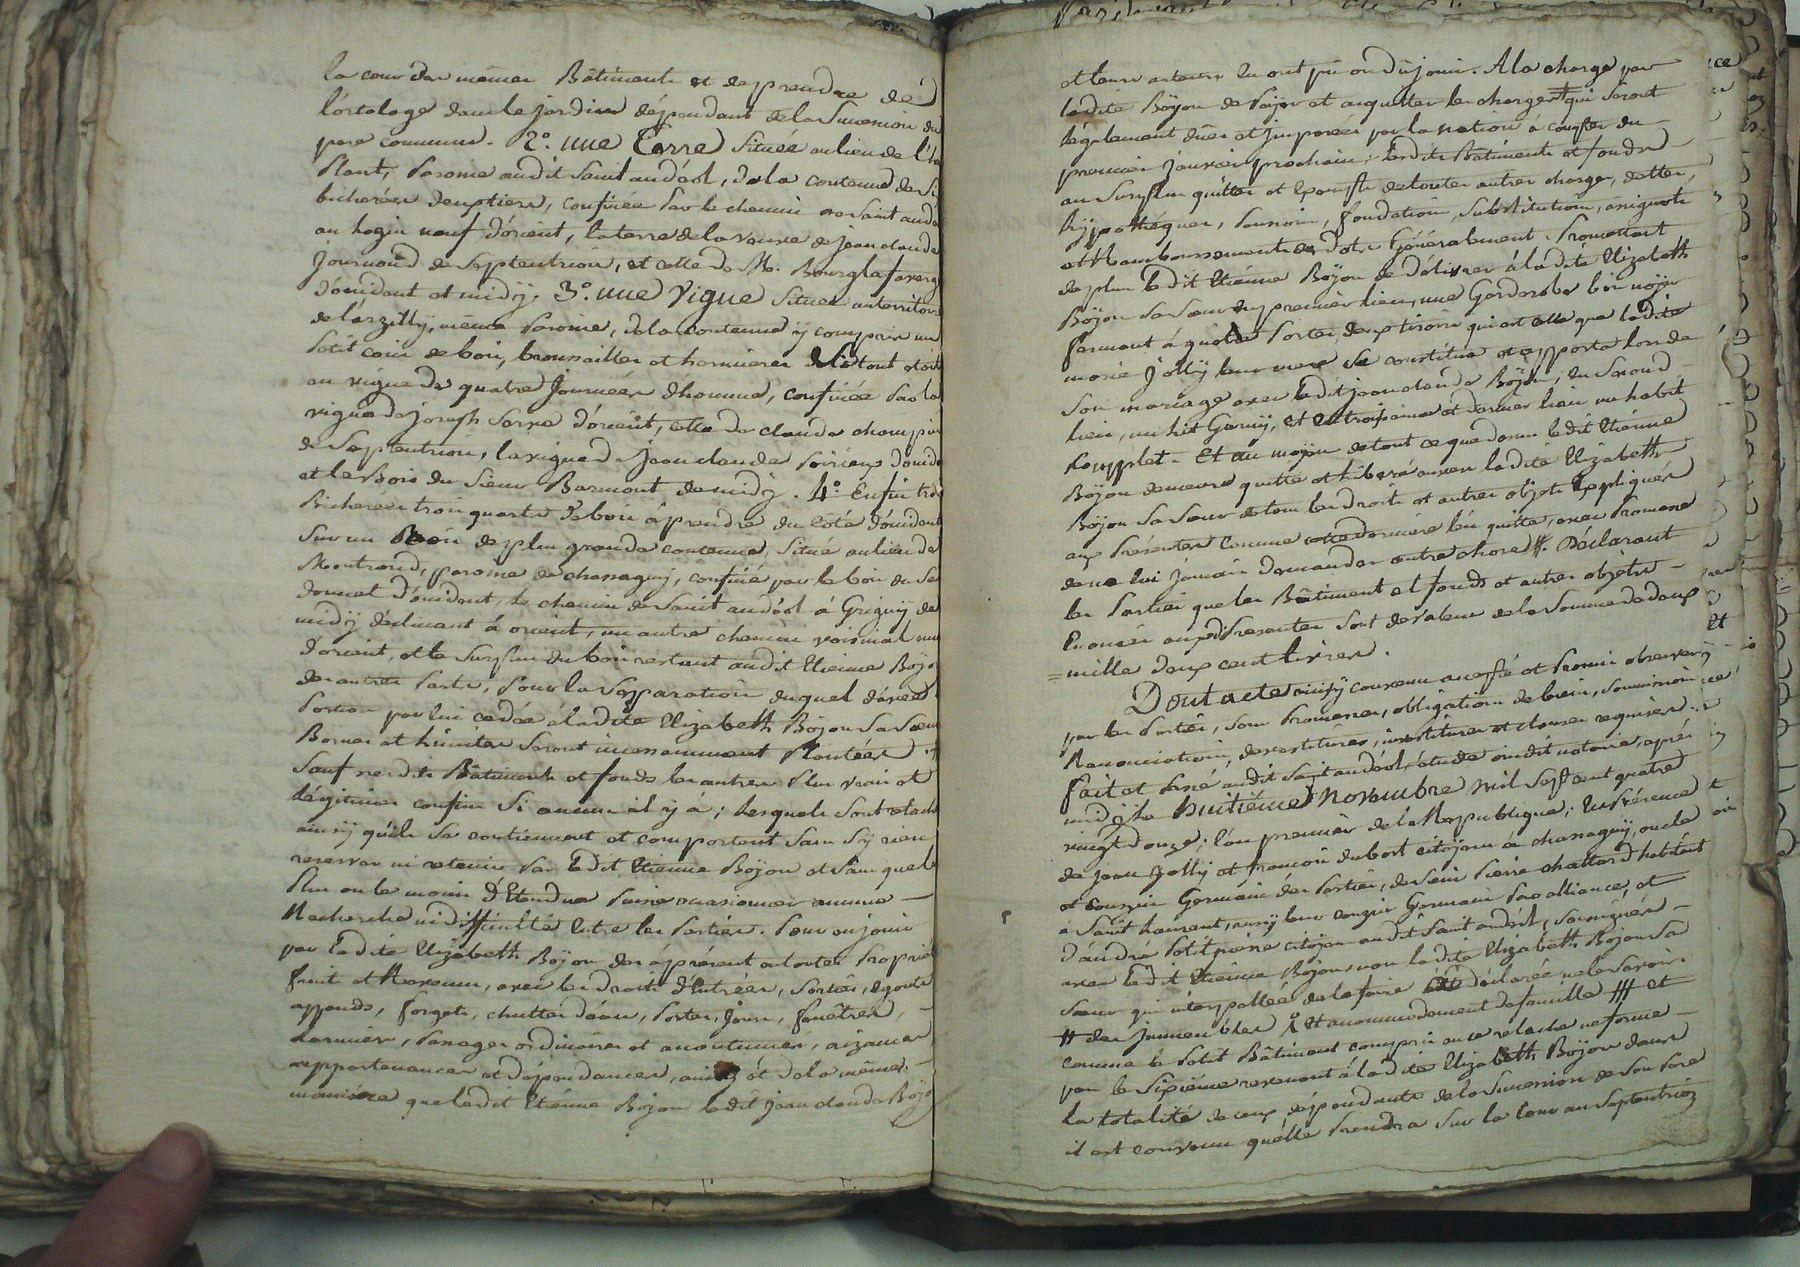 la cour des mêmes Bâtiments et de prendre de
l'ortolage dans le jardin dépendant de la Succession du
pere commun. 2.° une Terre Située au lieu de
Plant, Paroisse audit Saint andéol, de la contenue de
bicherées deux tiers, confinée Par le chemin de Saint andé
au logis neuf d'orient, la terre de la veuve de jean claude
journoud de Septentrion, et celle de M. Bourg
d'occident et midÿ. 3.° une Vigne Située au territoire
de l'arzillÿ, même Paroisse, de la contenue ÿ compris un
Petit coin de bois, brousailles et hermieres le tout
en vigne de quatre Journées d'homme, confinée Par la
vigne de joseph Serre d'orient, celle de claude champin
de Septentrion, la vigne de Jean claude Poirieux d'occide
et le Bois du Sieur Barmont de midÿ. 4.° Enfin trois
Bicherées trois quarts de bois à prendre du côté d'occident
Sur un Bois de plus grande contenue, Situé au lieu de
Montrond, paroisse de chassagnÿ, confiné par le bois du Sr
donnet d'occident, le chemin de Saint andéol à Grignÿ de
midÿ déclinant à orient, un autre chemin voisinal
d'orient, et le Surplus du bois restant audit Etienne Böjon
des autres Parts, Pour la Séparation duquel d'avec
Portion par lui cedée à ladite Elizabeth Böjon Sa Sœur
Bornes et limites Seront incessamment Plantées
Sauf nesdits Bâtiments et fonds les autres Plus vrais et
légitimes confins Si aucuns il ÿ á; lesquels Sont
ainsÿ qu'ils Se contiennent et comportent Sans Sÿ rien
reserver ni retenir Par ledit Etienne Böjon et Sans que le
Plus ou le moins d'Etendue Puisse occasionner aucune
Recherche ni difficulté Entre les Parties. Pour en jouir
par ladite Elizabeth Böjon dès àprésent en toute Proprié
fruits et Revenus, avec les droits d'Entrées, Sorties, egouts
appends, forgets, chutte d'eau, Portes, Jours, fenêtres,
Larmiers, Passages ordinaires et accoutumés, aizances
appartenances et dépendances, ainsÿ et de la même
manière que ledit Etiénne Böjon ledit jean claude Böjo
et leurs auteurs En ont pû ou dû jouir. A la charge par
ladite Böjon de Païer et acquitter les charges qui Seront
légalement dües et Jmposées par la nation à compter du
premier Janvier prochain; lesdits Bâtiments et fonds
au Surplus quittes et Exempts de toutes autres charges, dettes,
hÿpothéques, Pension, fondation, Substitution, anignots
et Remboursements de dots Généralement. Promettant
de plus ledit Etiénne Böjon de délivrer à ladite Elizabeth
Böjon Sa Sœur En premier lieu, une Garderobe bois noÿer
fermant à quatre Portes, deux tiroirs qui est celle que ladite
marie Jollÿ leur mere Se constitua et apporta lors de
Son mariage avec ledit jean claude Böjon; En Second
lieu, un lit Garnÿ, et En troisieme et dernier lieu un habit
Complet. Et au moÿen de tout ce que dessus ledit Etiénne
Böjon demeure quitte et liberé envers ladite Elizabeth
Böjon Sa Sœur de tous les droits et autres objets Expliqués
aux Présentes comme cette derniere l'en quitte, avec Promesse
de ne lui jamais demander autre chose #. Déclarant
les Parties que les Bâtiment et fonds et autres objets
Enoncés auxdites Présentes Sont de valeur de la Somme de deux
mille deux cent livres.
Dont acte ainsÿ convenu accepté et Promis observer
par les Parties, Sous Promesses, obligation de biens, Soumissions
Renonciation, devestitures, investitures et clauses requises.
fait et Passé audit Saint andéol, étude dudit notaire, après
midÿ le huitième novembre mil Sept cent quatre
vingt douze, l'an premier de la République; En Présence
de Jean Jollÿ et françois dubost citoÿens à chassagnÿ, oncle
et cousin Germain des Parties, de Sieur Pierre chattard habitant
à Saint Laurent, aussÿ leur cousin Germain Par alliance, et
d'andré Petitpierre citoÿen audit Saint andéol, Soussignés
avec ledit Etiénne Böjon, non ladite Elizabeth Böjon Sa
Sœur qui interpellée de le faire a déclaré ne le Savoir.
# des Jmmeubles & et accommodement de famille ### et
comme le Petit Bâtiment compris en ce relâche ne forme
pas le Sixiéme revenant à ladite Elizabeth Böjon dans
la totalité de ceux dépendants de la Succession de Son Pere
il est convenu qu'elle Prendra Sur la Cour au Septentrion